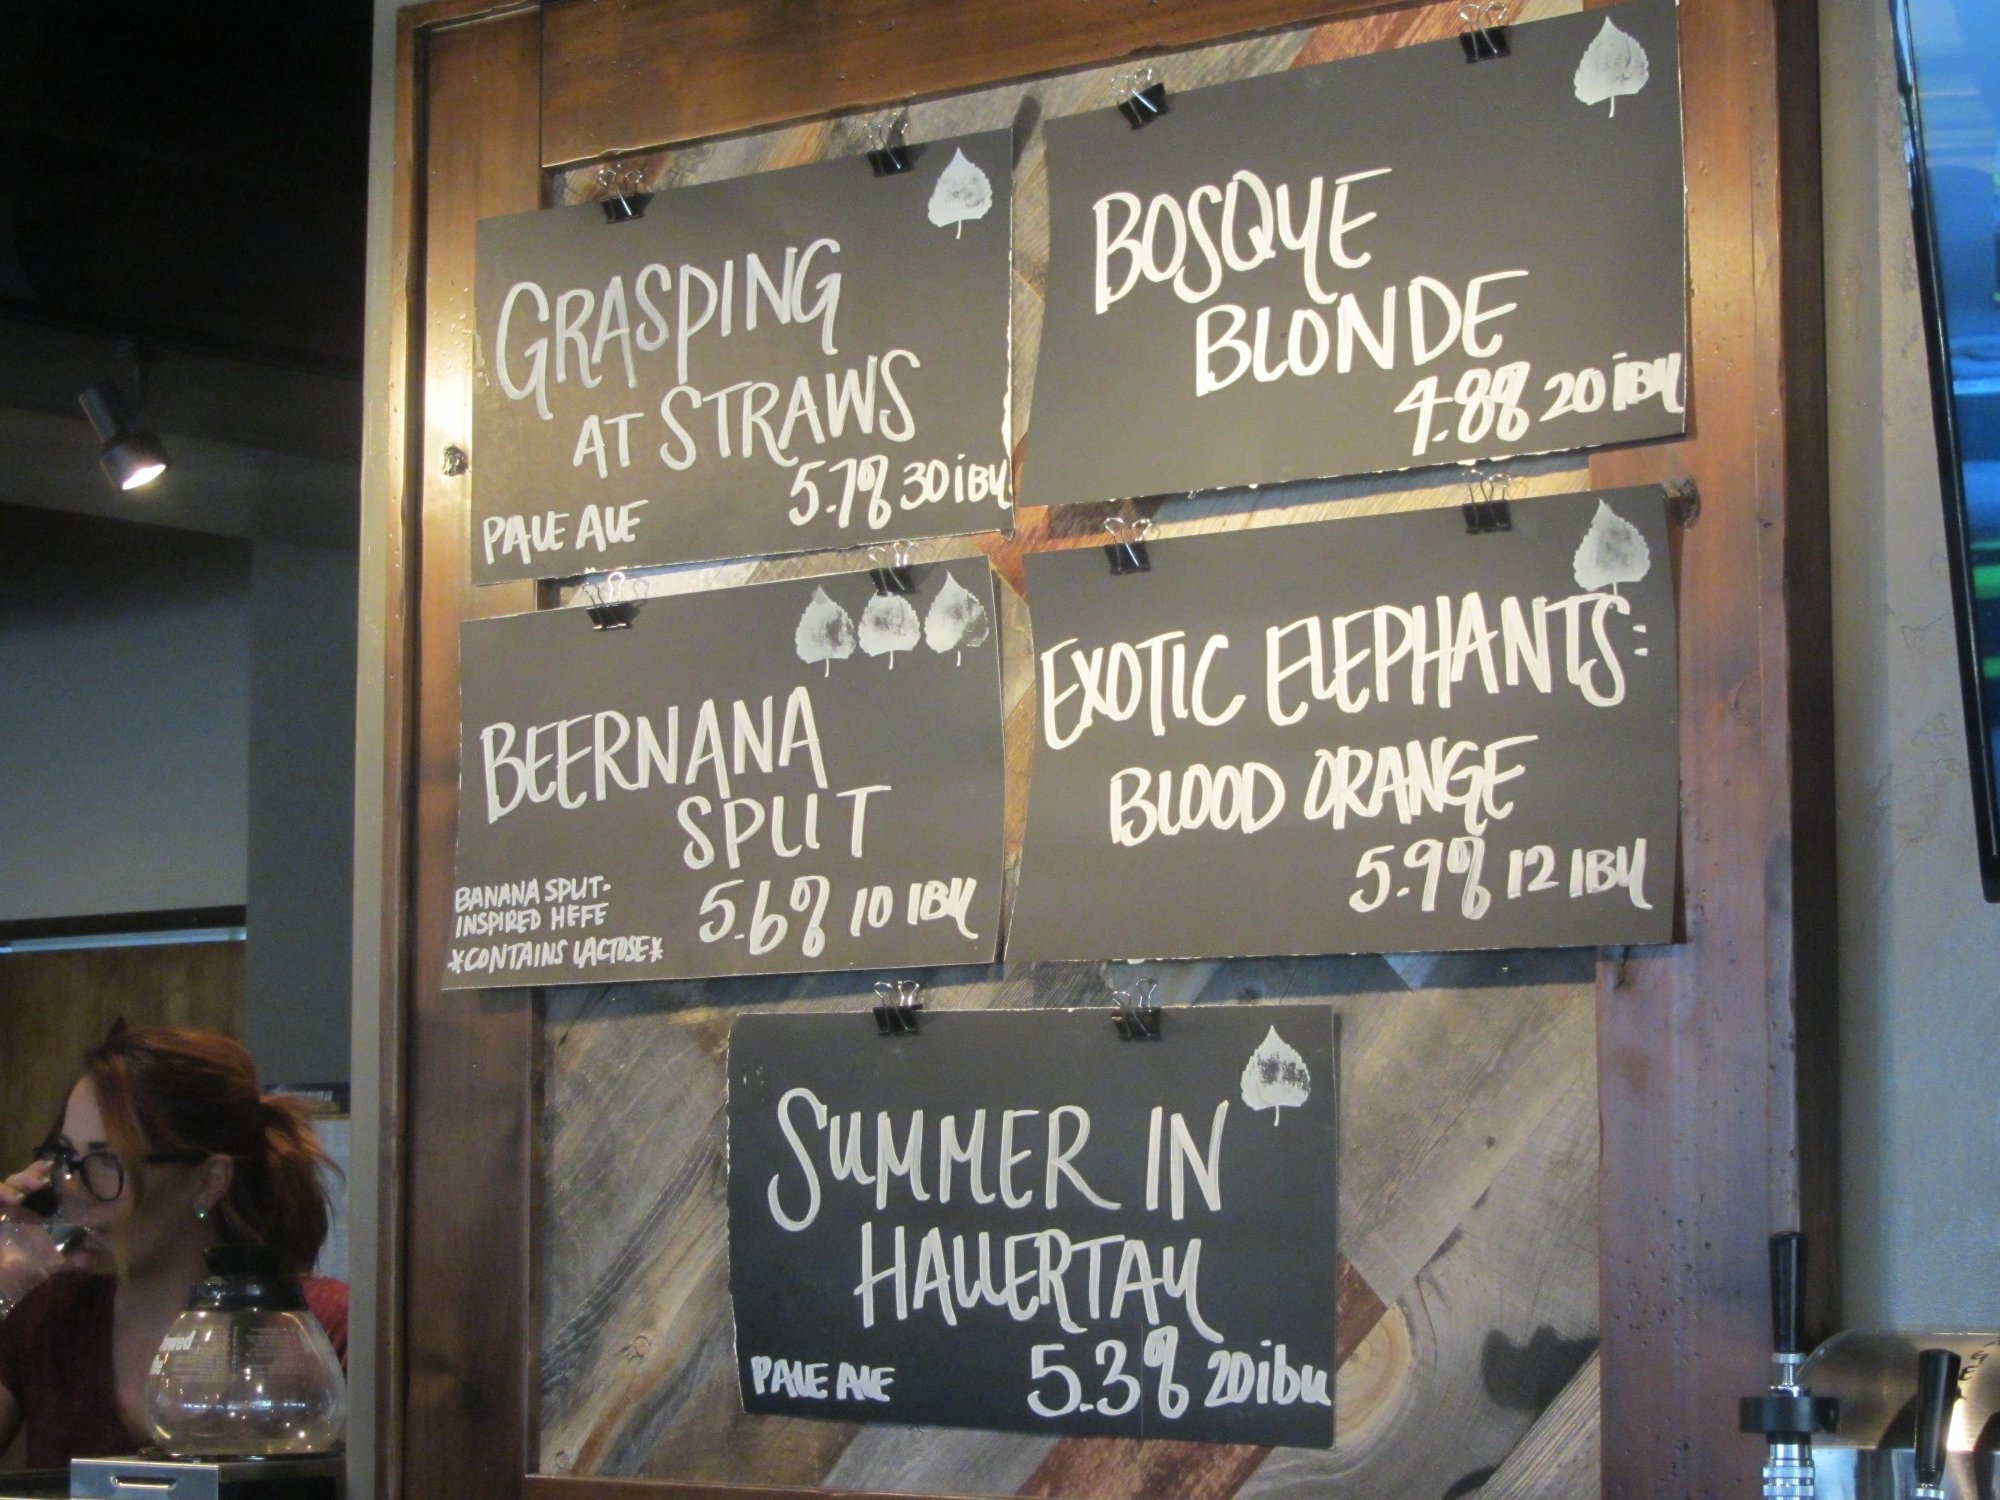 GRASPING
AT STRAWS
5.7% 30 IBU
PALE ALE
BOSQUE
BLONDE
4.8% 20 IBU
BEERNANA
SPLIT
BANANA SPLIT-
INSPIRED HEFE
*CONTAINS LACTOSE*
5.6% 10 IBU
EXOTIC ELEPHANTS:
BLOOD ORANGE
5.9% 12 IBU
SUMMER IN
HALLERTAU
PALE ALE
5.3% 20 ibu